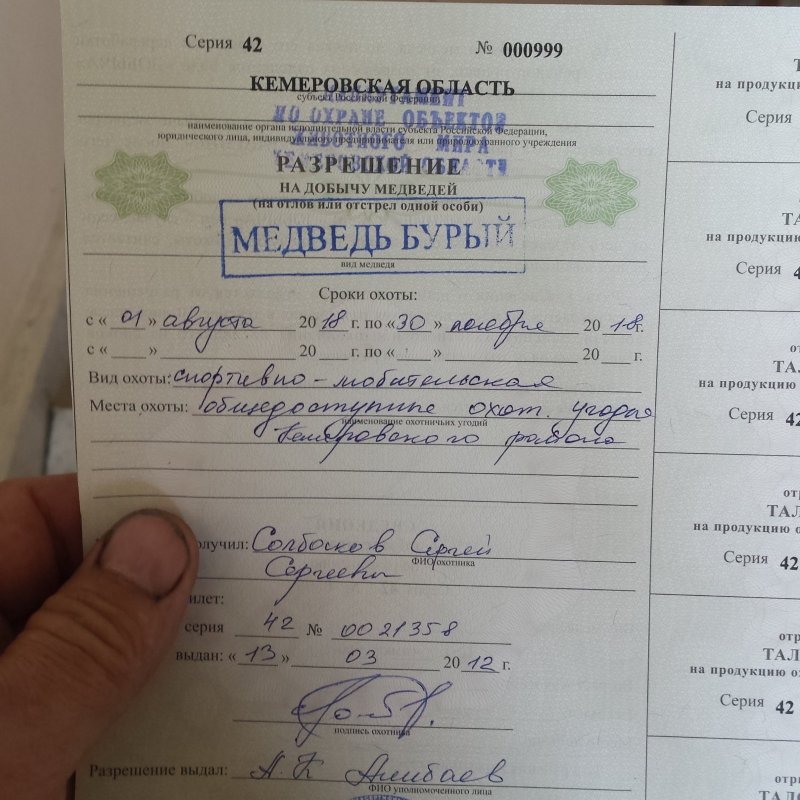 Серия 42 № 000999
КЕМЕРОВСКАЯ ОБЛАСТЬ
субъект Российской Федерации
ПО ОХРАНЕ ОБЪЕКТОВ
наименование органа исполнительной власти субъекта Российской Федерации,
юридического лица, индивидуального предпринимателя или природоохранного учреждения
ЖИВОТНОГО МИРА
РАЗРЕШЕНИЕ
НА ДОБЫЧУ МЕДВЕДЕЙ
(на отлов или отстрел одной особи)
МЕДВЕДЬ БУРЫЙ
вид медведя
Сроки охоты:
с « 01 » августа 20 18 г. по « 30 » ноября 20 18 г.
с « » 20 г. по « » 20 г.
Вид охоты: спортивно - любительская
Места охоты: общедоступные охот. угодья
наименование охотничьих угодий
Кемеровского района
получил: Сергей
ФИО охотника
Сергеевич
билет:
серия 42 № 0021358
выдан: « 13 » 03 20 12 г.
подпись охотника
Разрешение выдал: А.К Алибаев
ФИО уполномоченного лица
на продукцию
Серия
на продукцию
Серия 4
ТАЛ
на продукцию о
Серия 42
отр
ТАЛ
на продукцию о
Серия 42
отр
ТАЛ
на продукцию ох
Серия 42
отр